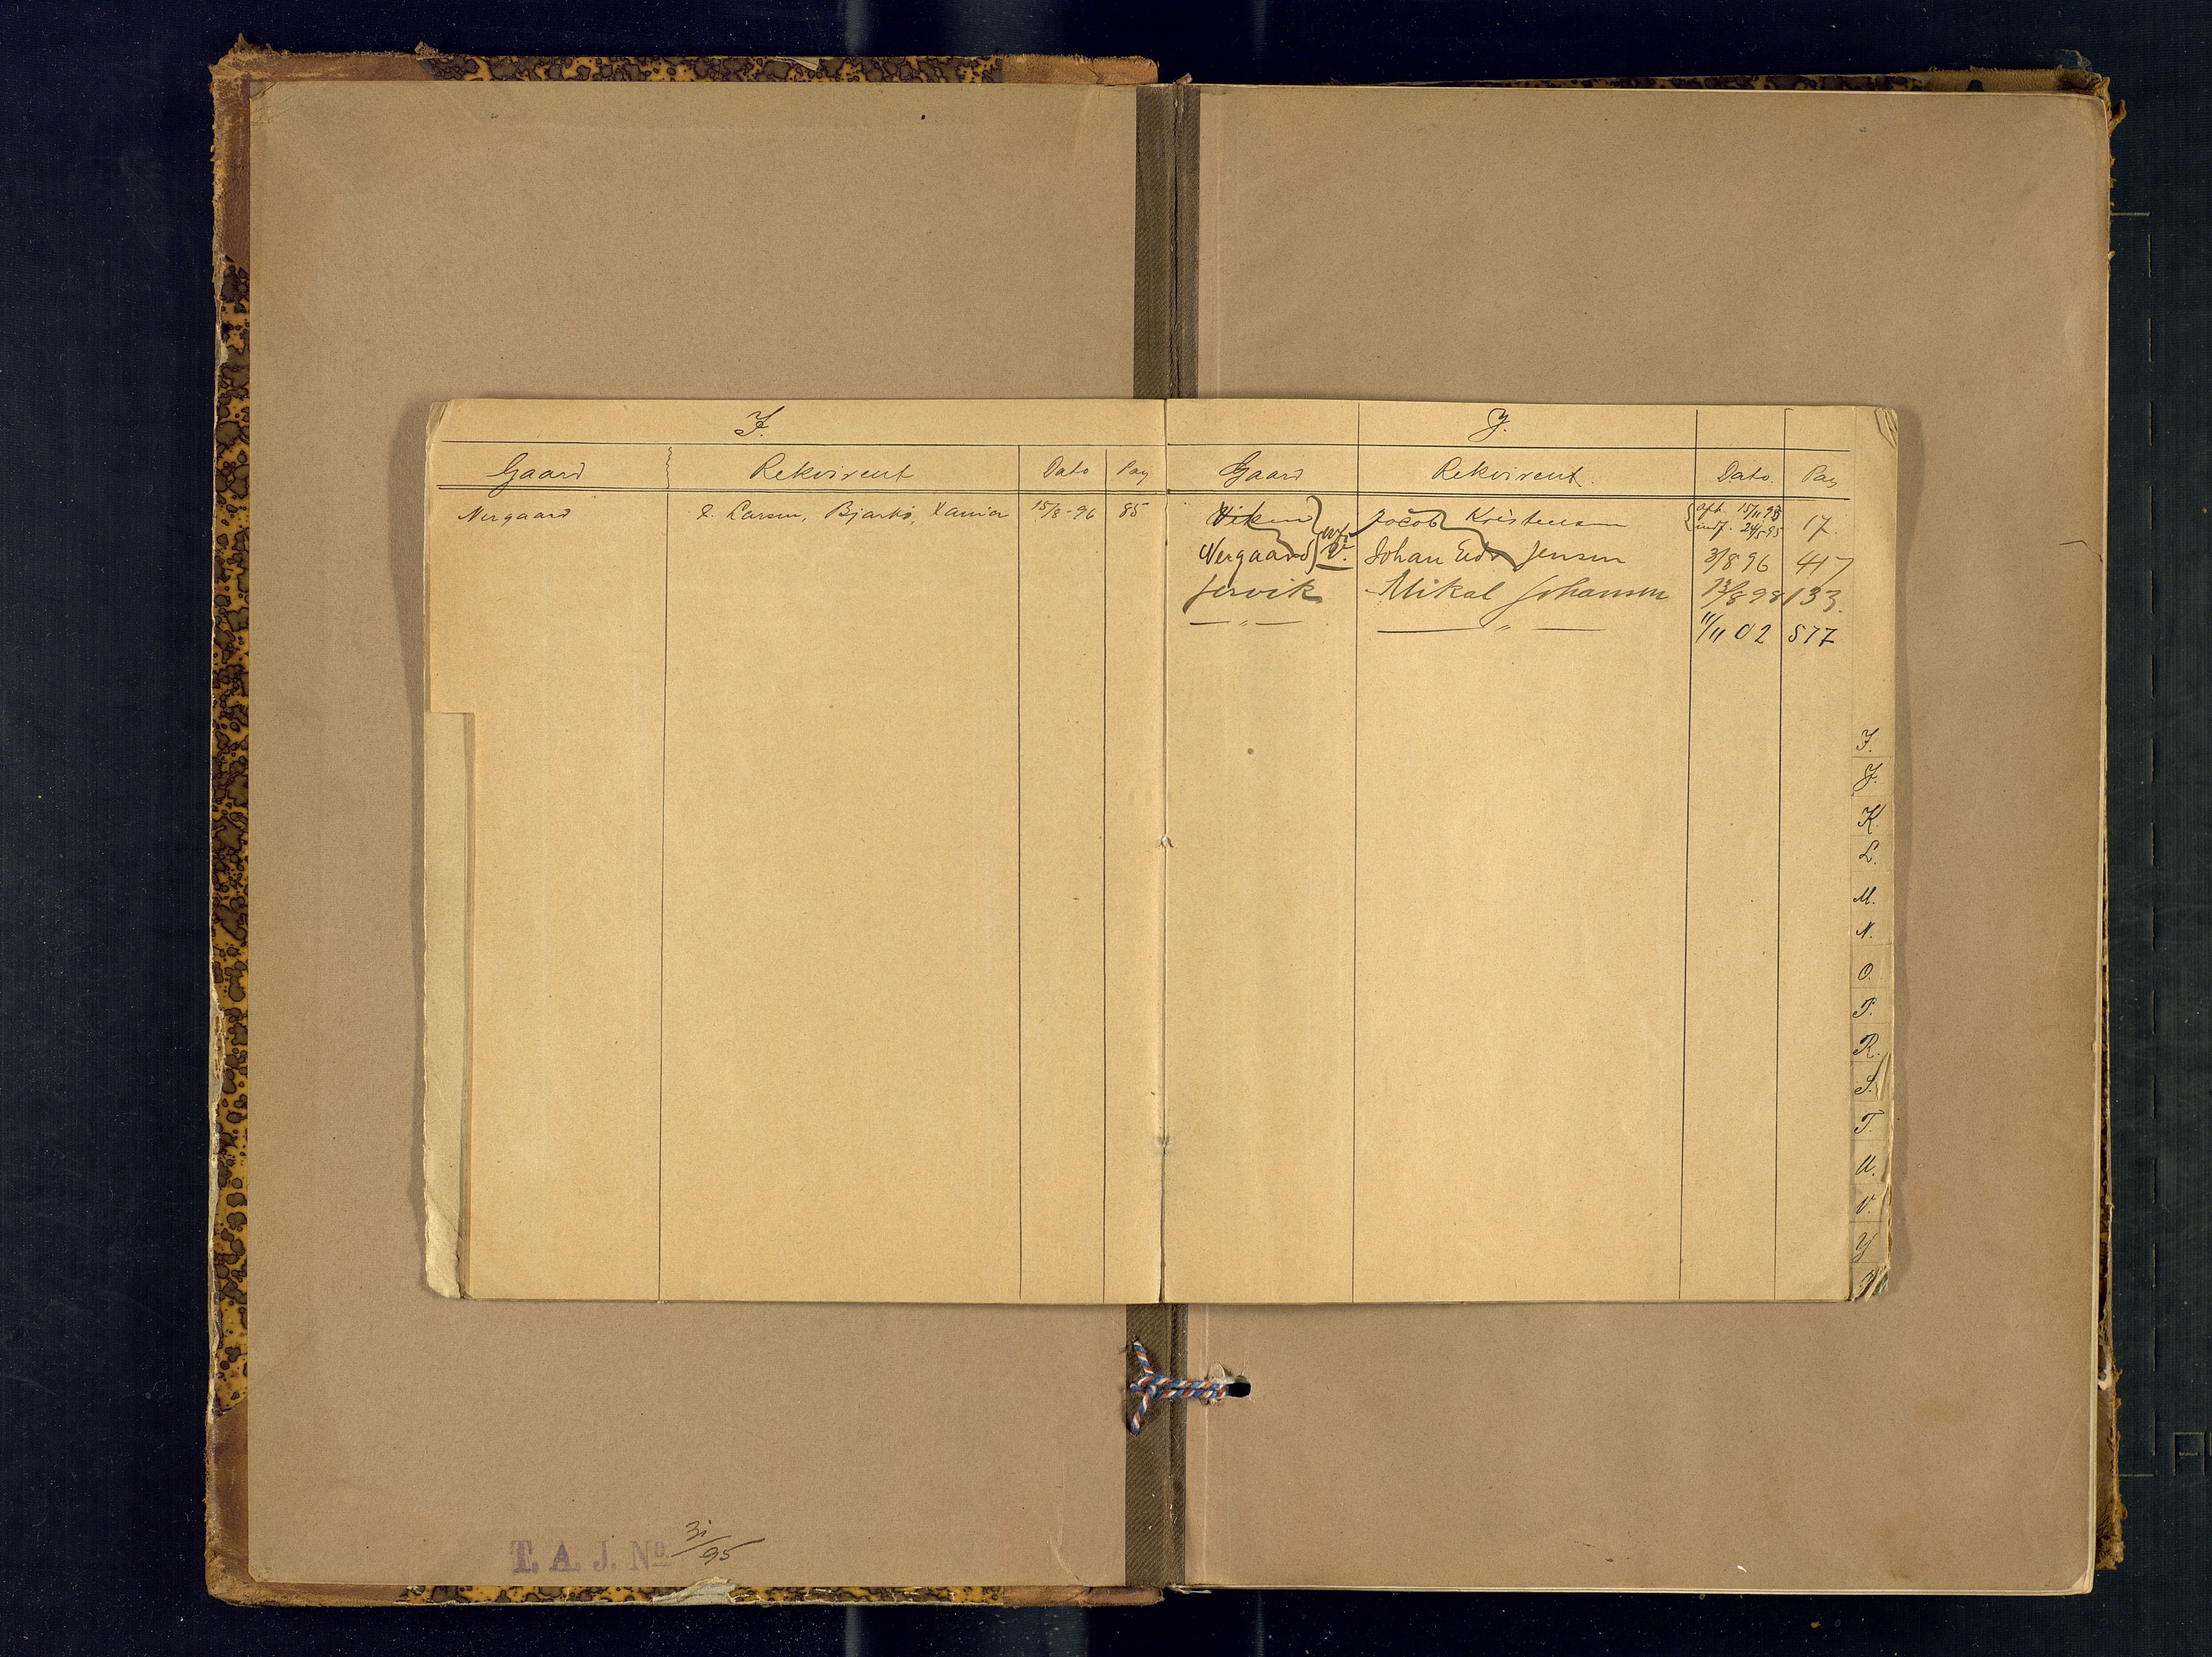 I.
Gaard Rekvirent Dato Pag
Nergaard L. Larsen, Bjarkö, 15/8-96 85
J.
Gaard Rekvirent. Dato. Pag
Viken Jacob Kristensen 15/11 93 24/5-95 17.
Nergaard V. Johan Edv Jensen 3/8 96 417
Jervik Mikal Johansen 13/8 98 133.
— " — — " — 11/11 02 577
I.
J.
K.
L.
M.
N.
O.
P.
R.
S.
T.
U.
V.
Y
T. A. J. No 31/95